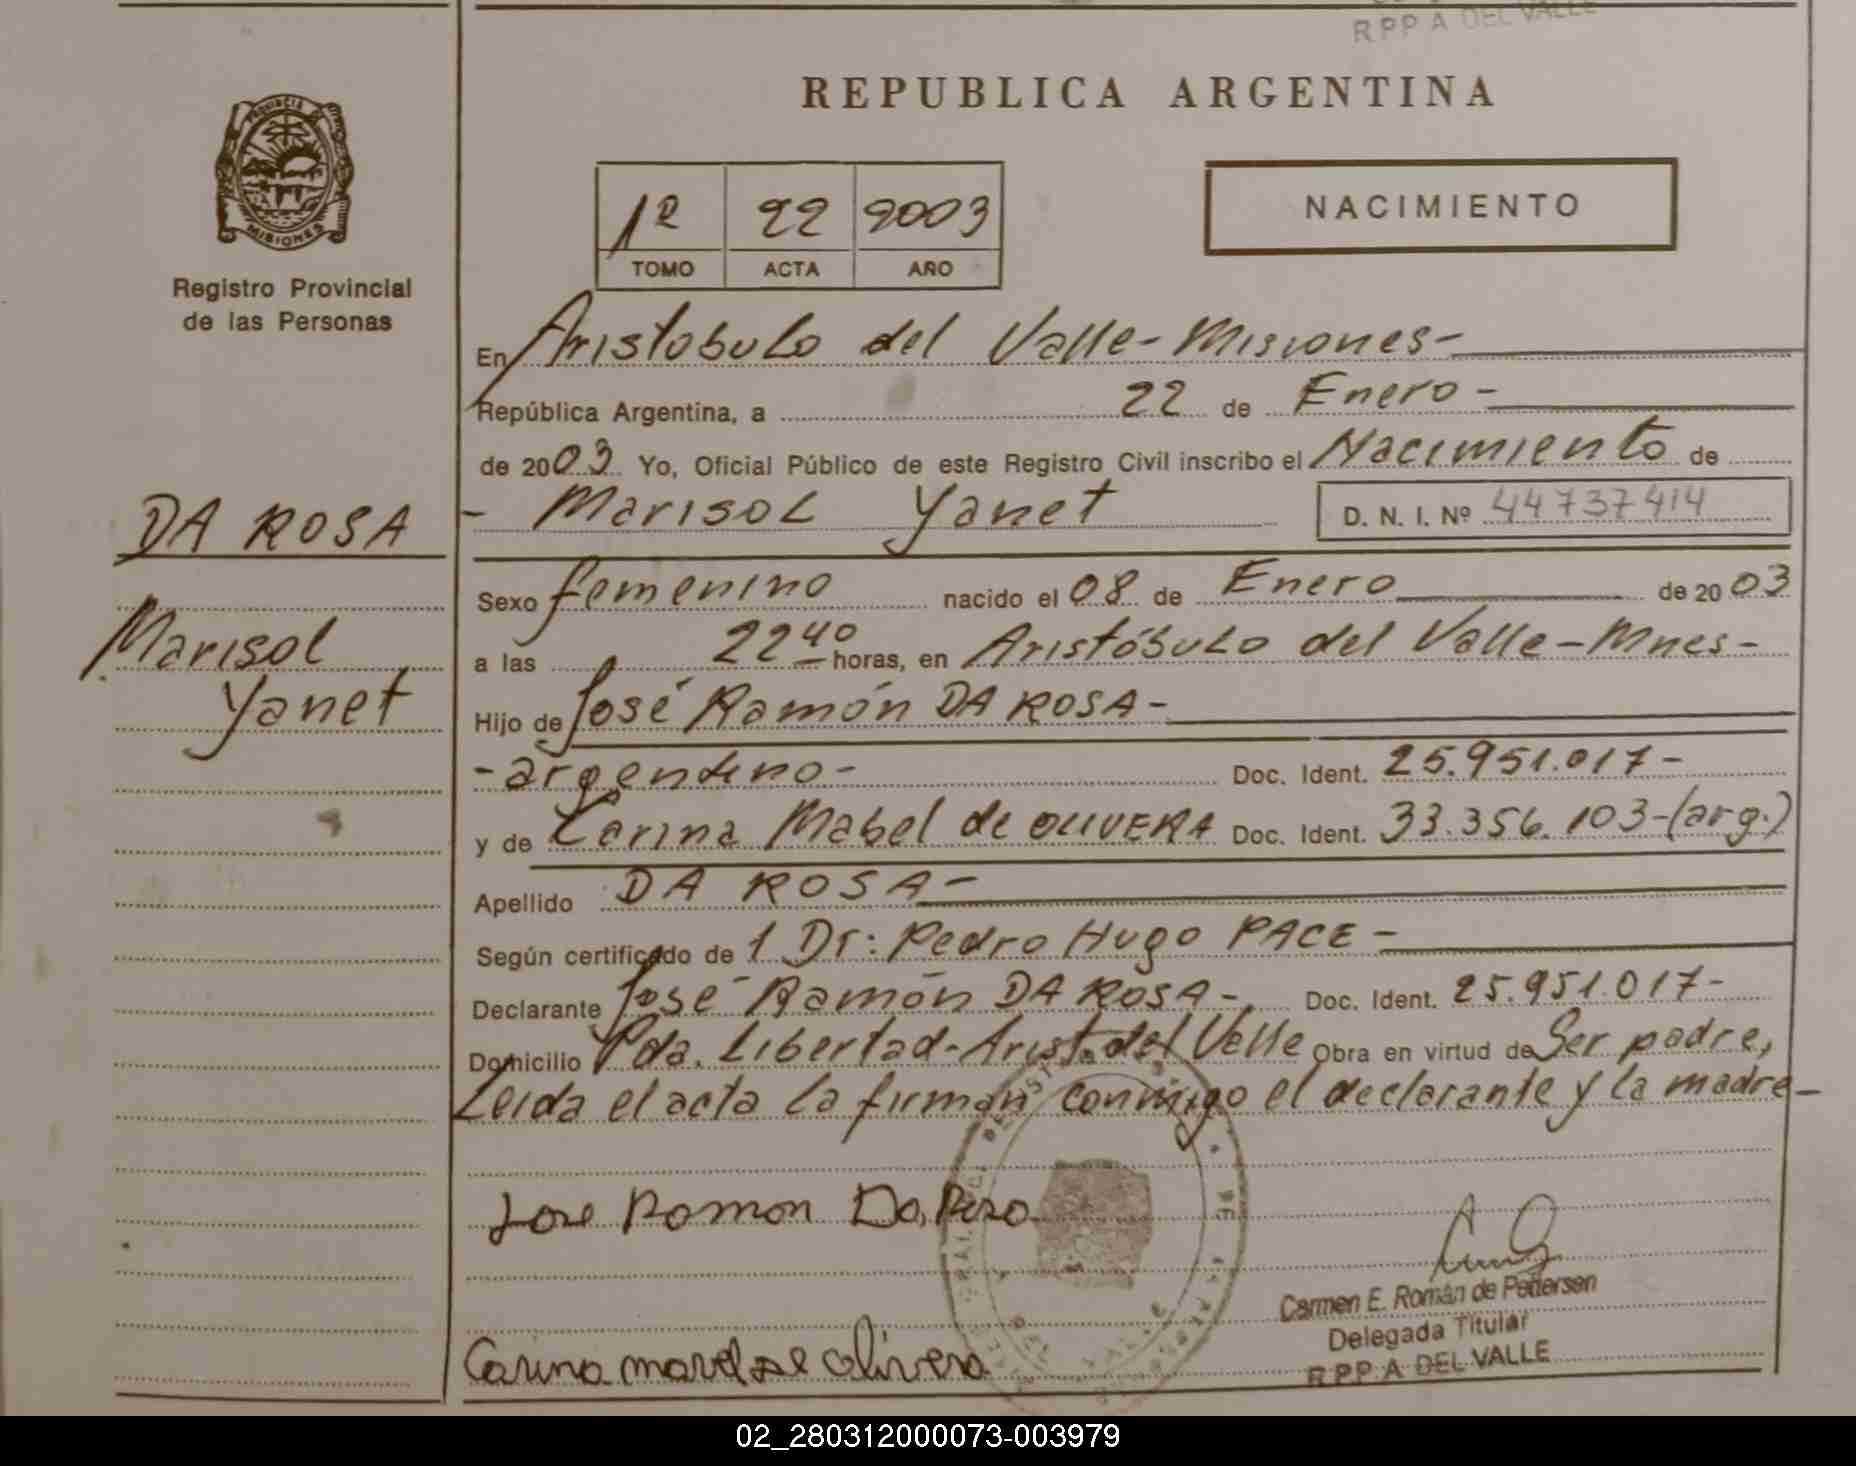 R.P.P. A DEL VALLE
REPUBLICA ARGENTINA
PROVINCIA
MISIONES
Registro Provincial
de las Personas
1º 22 2003
TOMO ACTA AÑO
NACIMIENTO
En Aristobulo del Valle-Misiones-
República Argentina, a 22 de Enero-
de 2003 Yo, Oficial Público de este Registro Civil inscribo el Nacimiento de
- Marisol Yanet D. N. I. Nº 44737414
DA ROSA
Marisol
Yanet
Sexo femenino nacido el 08 de Enero de 2003
a las 22 40 horas, en Aristóbulo del Valle-Mnes-
Hijo de José Ramón DA ROSA-
-argentino- Doc. Ident. 25.951.017-
y de Carina Mabel de OLIVERA Doc. Ident. 33.356.103-(arg.)
Apellido DA ROSA-
Según certificado de 1 Dr: Pedro Hugo PACE-
Declarante José Ramón DA ROSA- Doc. Ident. 25.951.017-
Domicilio Pda. Libertad-Arist. del Valle Obra en virtud de Ser padre,
Leida el acta la firman conmigo el declarante y la madre-
Jose Ramon Da Roza
Carina mavel de olivera
Carmen E. Román de Pettersen
Delegada Titular
R.P.P. A. DEL VALLE
02_280312000073-003979